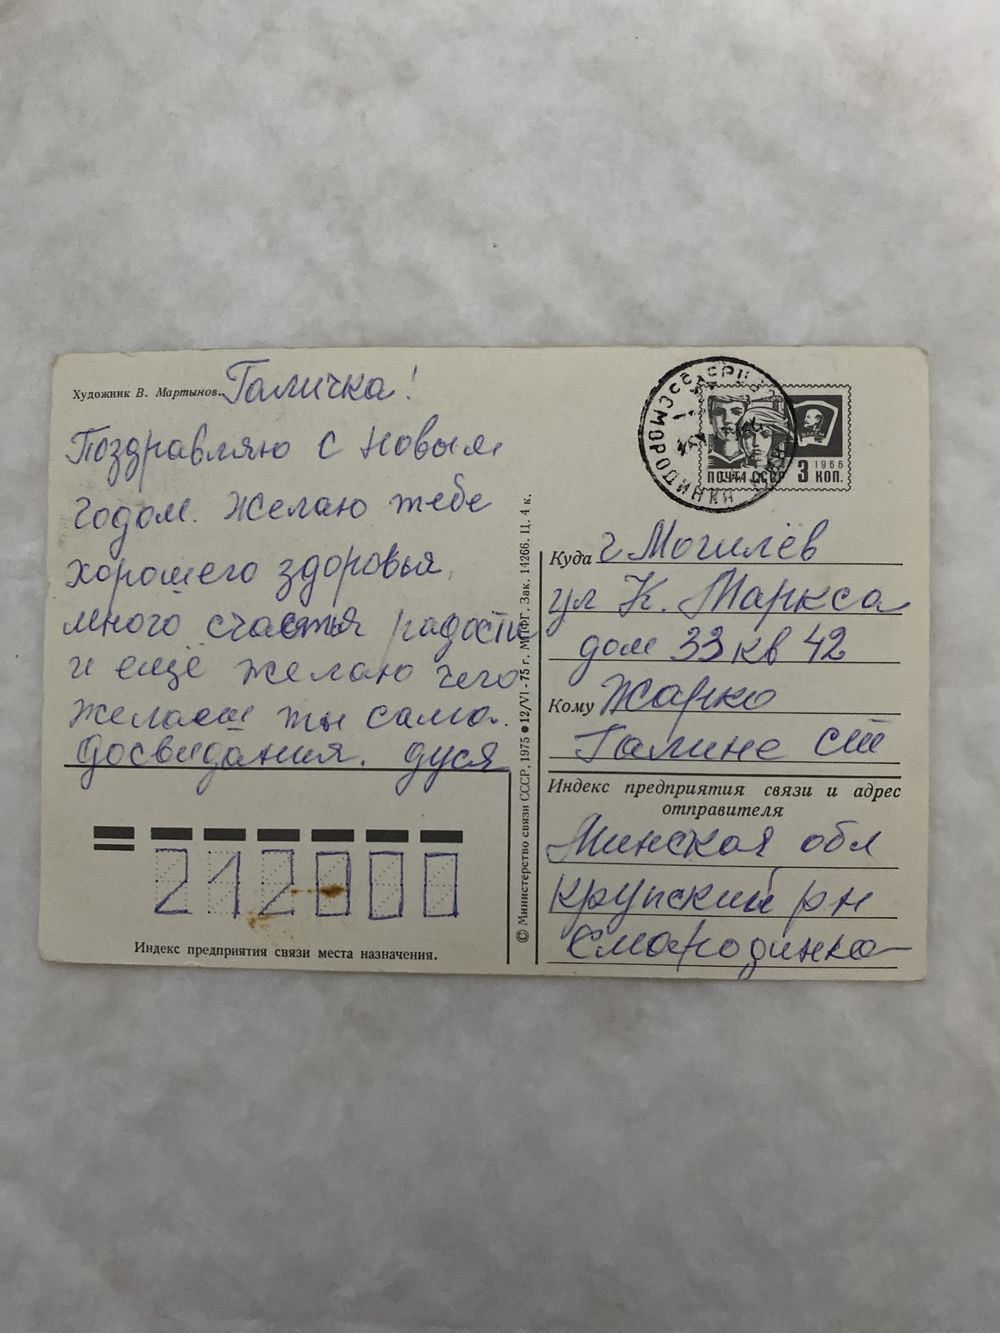 Художник В. Мартынов.
Галичка!
Поздравляю с Новым
годом. Желаю тебе
хорошего здоровья,
много счастья радости
и ещё желаю чего
желаеш ты сама.
Досвидания. Дуся
212000
Индекс предприятия связи места назначения.
© Министерство связи СССР, 1975 ● 12/VI-75 г. МПФГ. Зак. 14266. Ц. 4 к.
ПОЧТА СССР 3 КОП.
1966
ВЛКСМ
Куда г Могилёв
ул К. Маркса
дом 33 кв 42
Кому Жарко
Галине Ст
Индекс предприятия связи и адрес
отправителя
Минская обл
Крупский рн
Смародинка